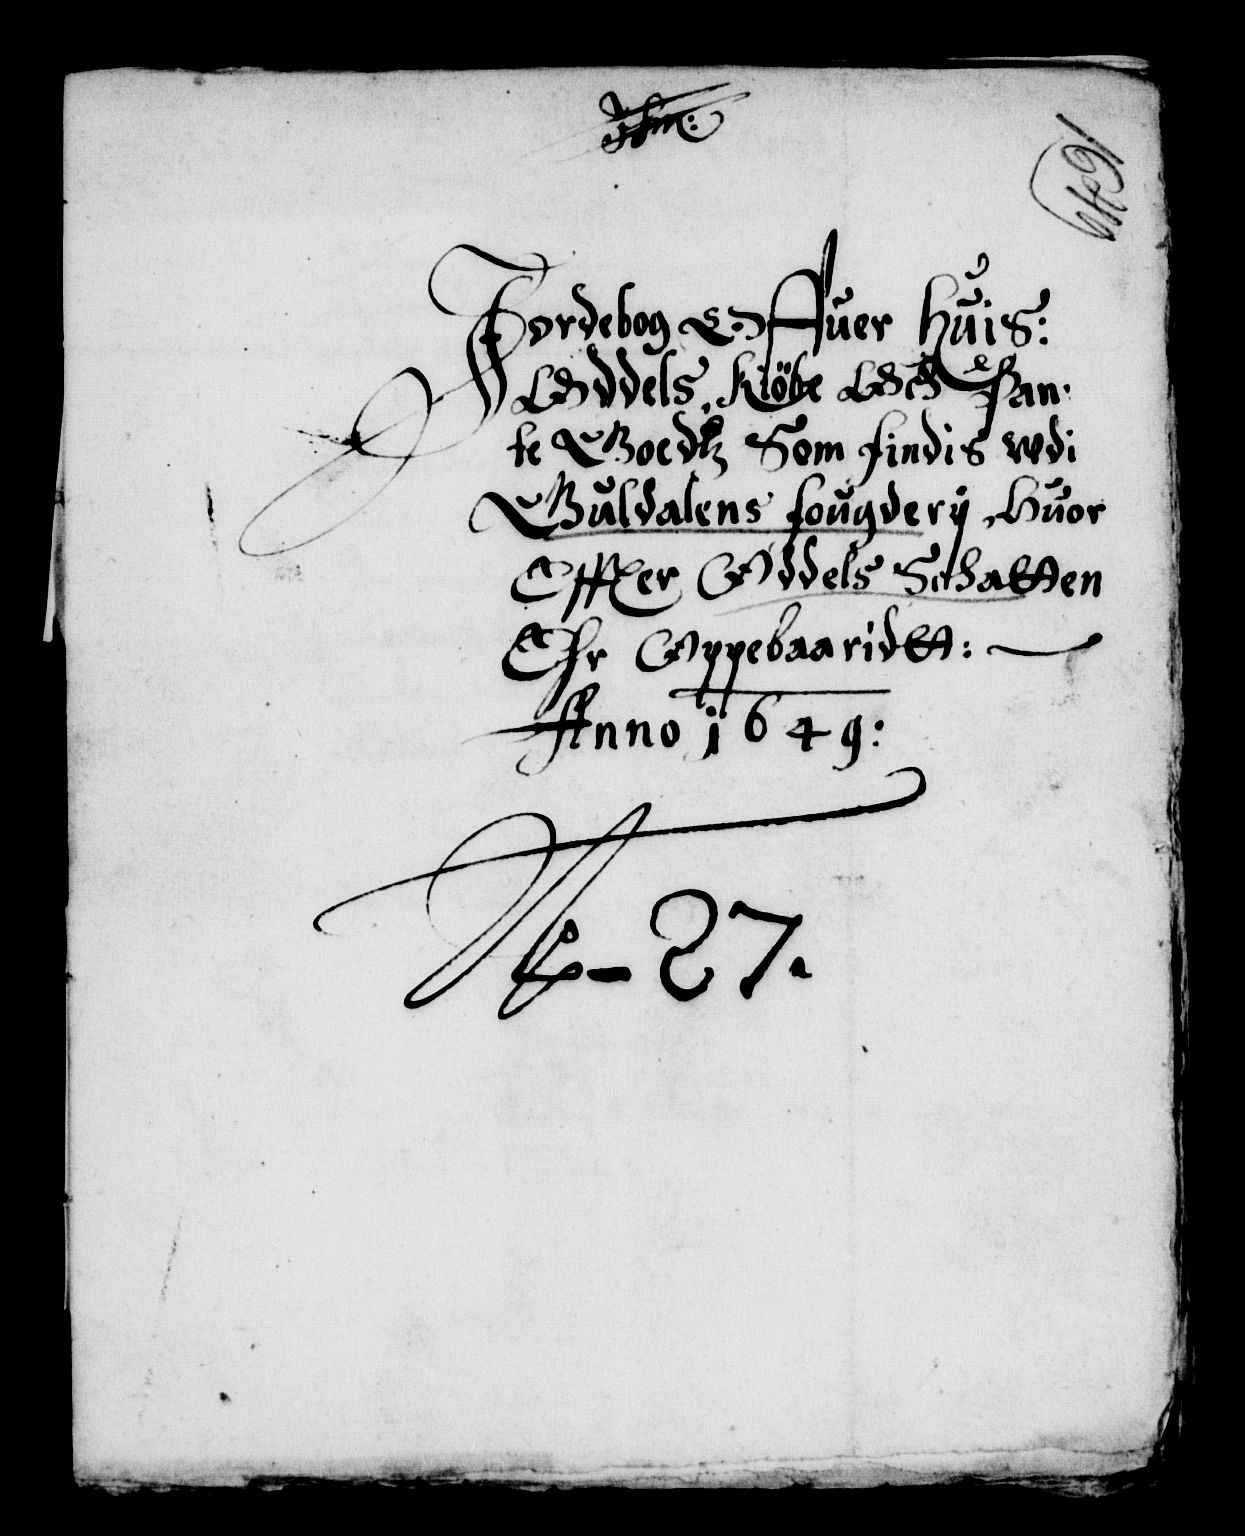 1649
Jordebog Offuer huis:
Oddels, Kiöbe Och Pan-
te Goedtz Som findis wdi
Guldalens fougderij, Huor
Effter Oddels Schatten
Ehr Oppebaaridtt:
Anno 1649:
N - 27.